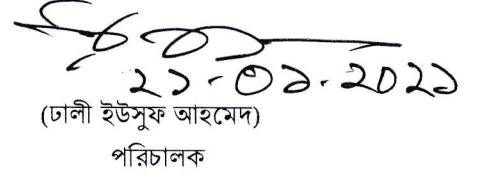 ২১-০১-২০২১
(ঢালী ইউসুফ আহমেদ)
পরিচালক